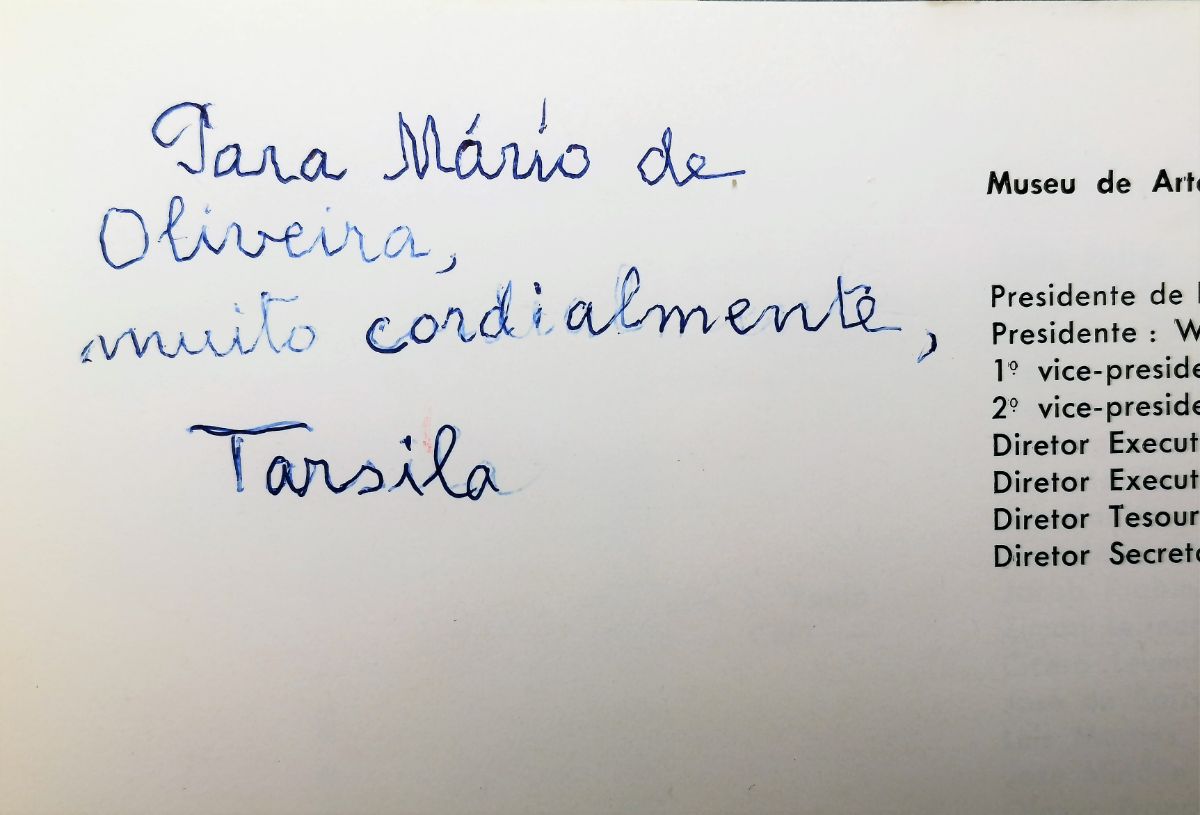 Para Mário de
Oliveira,
muito cordialmente,
Tarsila
Museu de Arte
Presidente de
Presidente : W
1º vice-preside
2º vice-preside
Diretor Execut
Diretor Execut
Diretor Tesour
Diretor Secreta